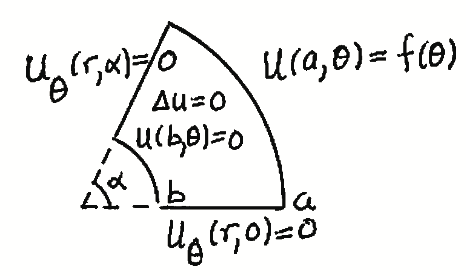 u_θ(r,α)=0
u(a,θ)=f(θ)
Δu=0
u(b,θ)=0
α
b
a
u_θ(r,0)=0